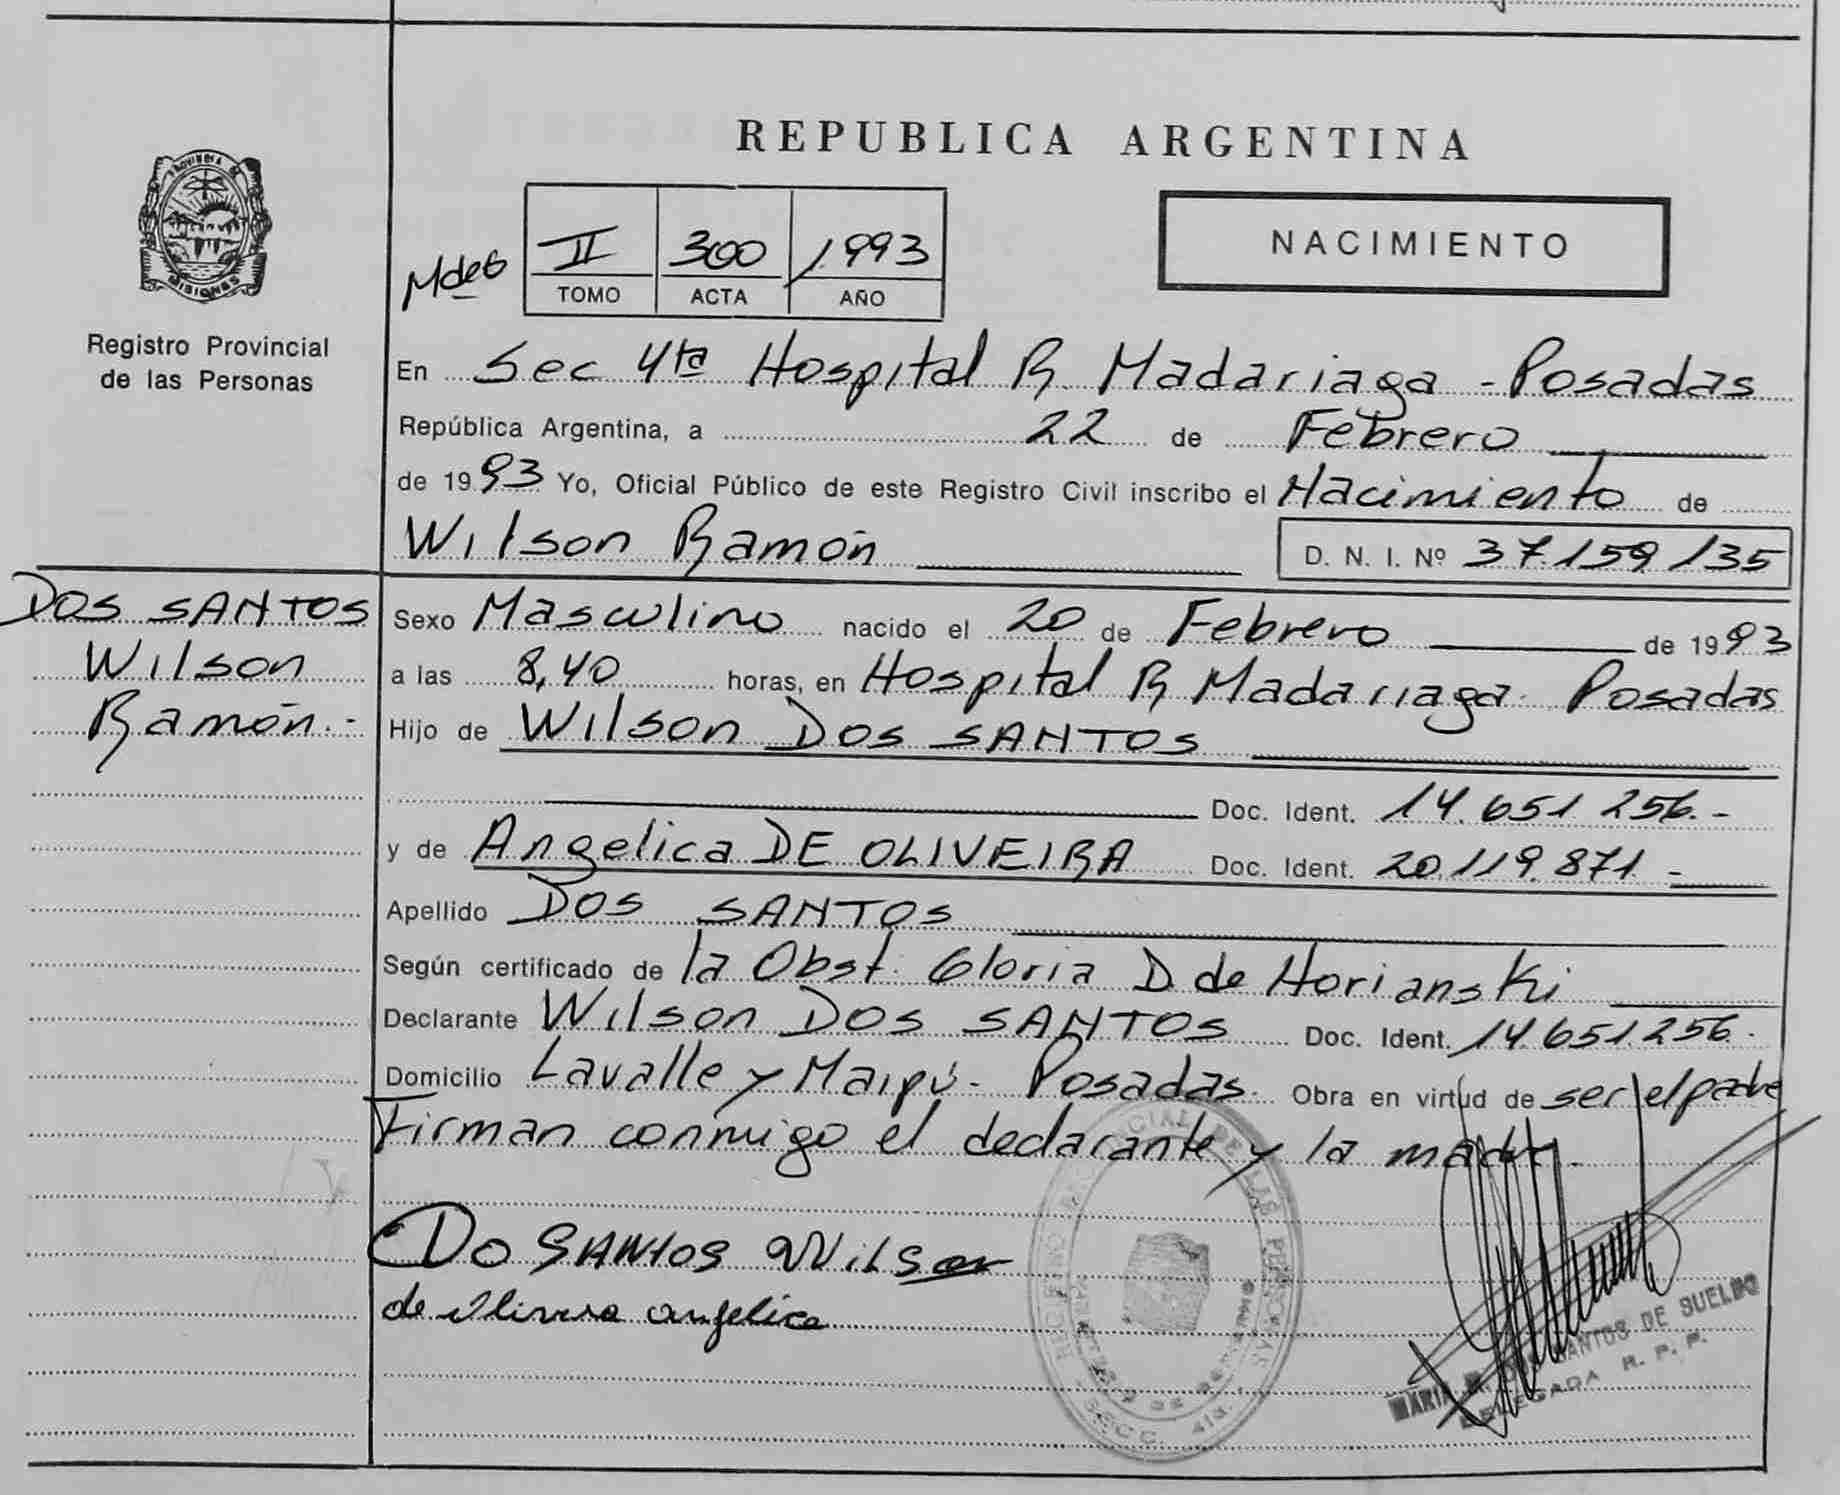 REPUBLICA ARGENTINA
PROVINCIA DE
MISIONES
Registro Provincial
de las Personas
II 300 1993
TOMO ACTA AÑO
NACIMIENTO
En Sec 4ta Hospital R. Madariaga - Posadas
República Argentina, a 22 de Febrero
de 1993 Yo, Oficial Público de este Registro Civil inscribo el Nacimiento de
Wilson Ramón D. N. I. Nº 37.159.135
DOS SANTOS
Wilson
Ramón.-
Sexo Masculino nacido el 20 de Febrero de 1993
a las 8,40 horas, en Hospital R Madariaga Posadas
Hijo de Wilson DOS SANTOS
Doc. Ident. 14.651.256.-
y de Angelica DE OLIVEIRA Doc. Ident. 20.119.871.-
Apellido DOS SANTOS
Según certificado de la Obst. Gloria D. de Horianski
Declarante Wilson DOS SANTOS Doc. Ident. 14.651.256.
Domicilio Lavalle y Maipú- Posadas. Obra en virtud de ser el padre
Firman conmigo el declarante y la madre.
Do SANTOS Wilson
de angelica
REGISTRO PROVINCIAL DE LAS PERSONAS
SECC. 4ta.
MARIA DOS SANTOS DE SUELDO
DELEGADA R. P. P.